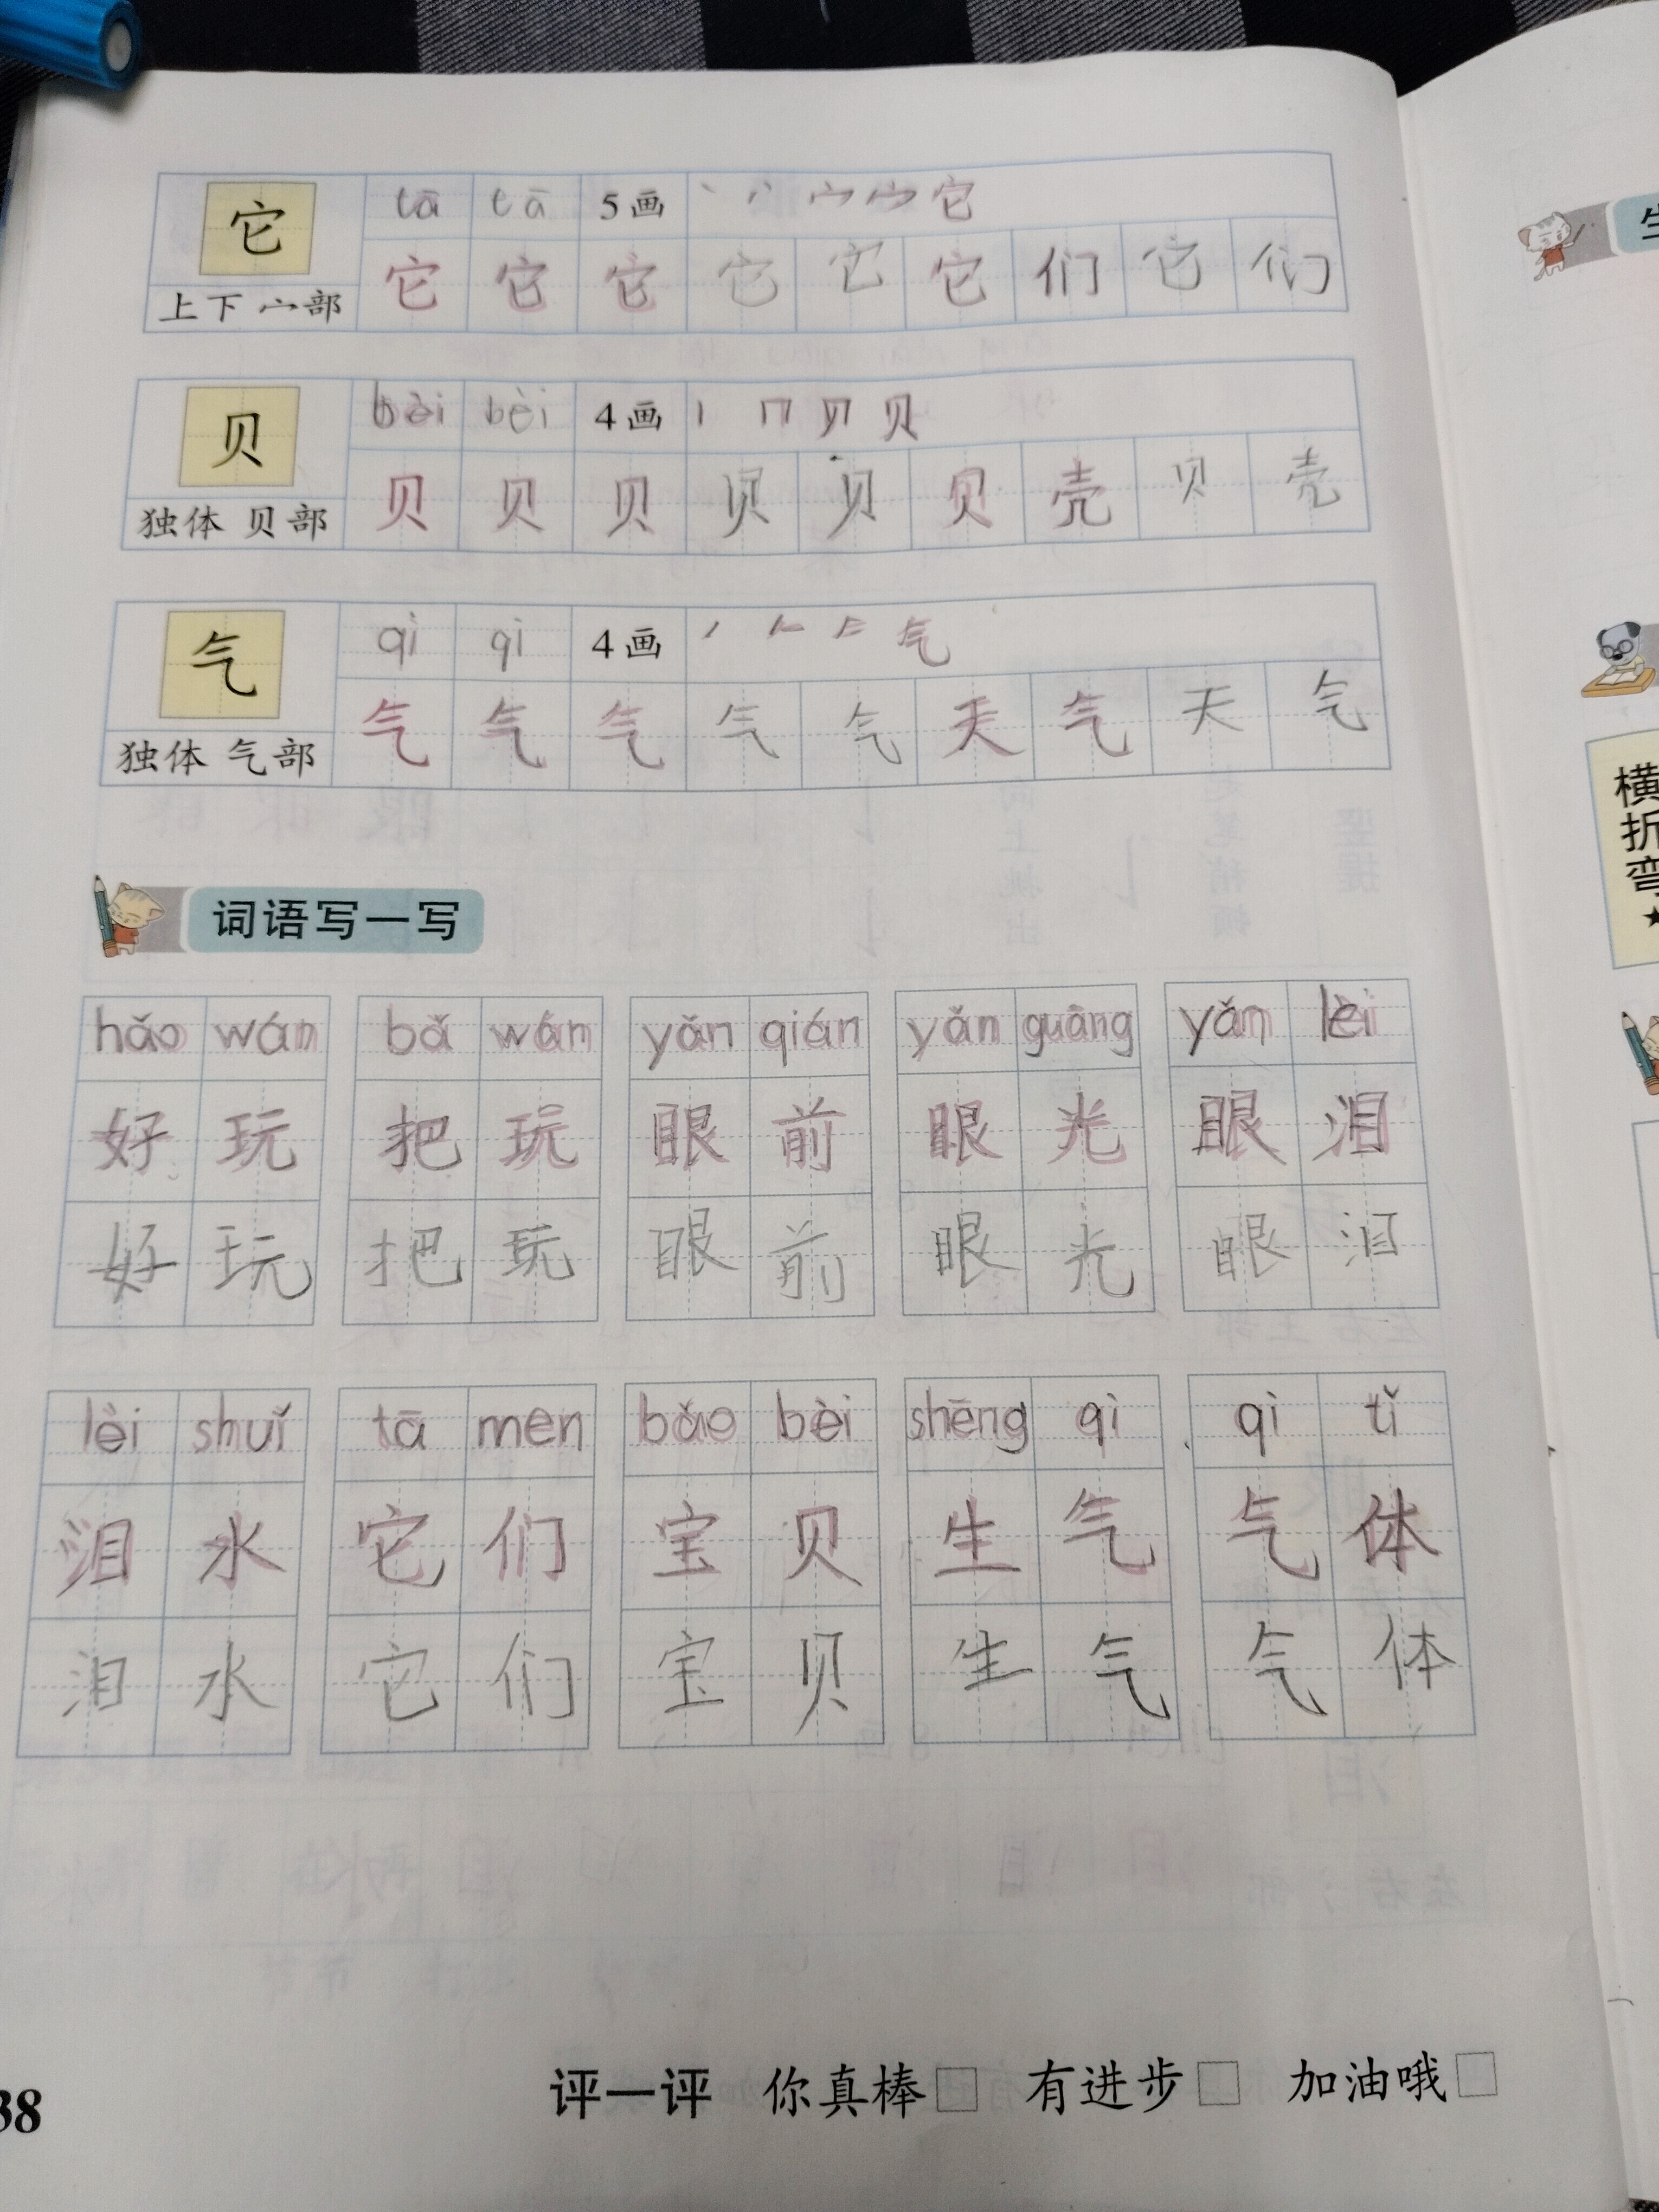 它 tā tā 5画 丶 丷 宀 宀 它
上下 宀部 它 它 它 它 它 它 们 它 们
贝 bèi bèi 4画 丨 冂 贝 贝
独体 贝部 贝 贝 贝 贝 贝 贝 壳 贝 壳
气 qì qì 4画 丿 𠂉 气
独体 气部 气 气 气 气 气 天 气 天 气
词语写一写
hǎo wán bǎ wán yǎn qián yǎn guāng yǎn lèi
好 玩 把 玩 眼 前 眼 光 眼 泪
好 玩 把 玩 眼 前 眼 光 眼 泪
lèi shuǐ tā men bǎo bèi shēng qì qì tǐ
泪 水 它 们 宝 贝 生 气 气 体
泪 水 它 们 宝 贝 生 气 气 体
评一评 你真棒□ 有进步□ 加油哦□
38
横
折
弯